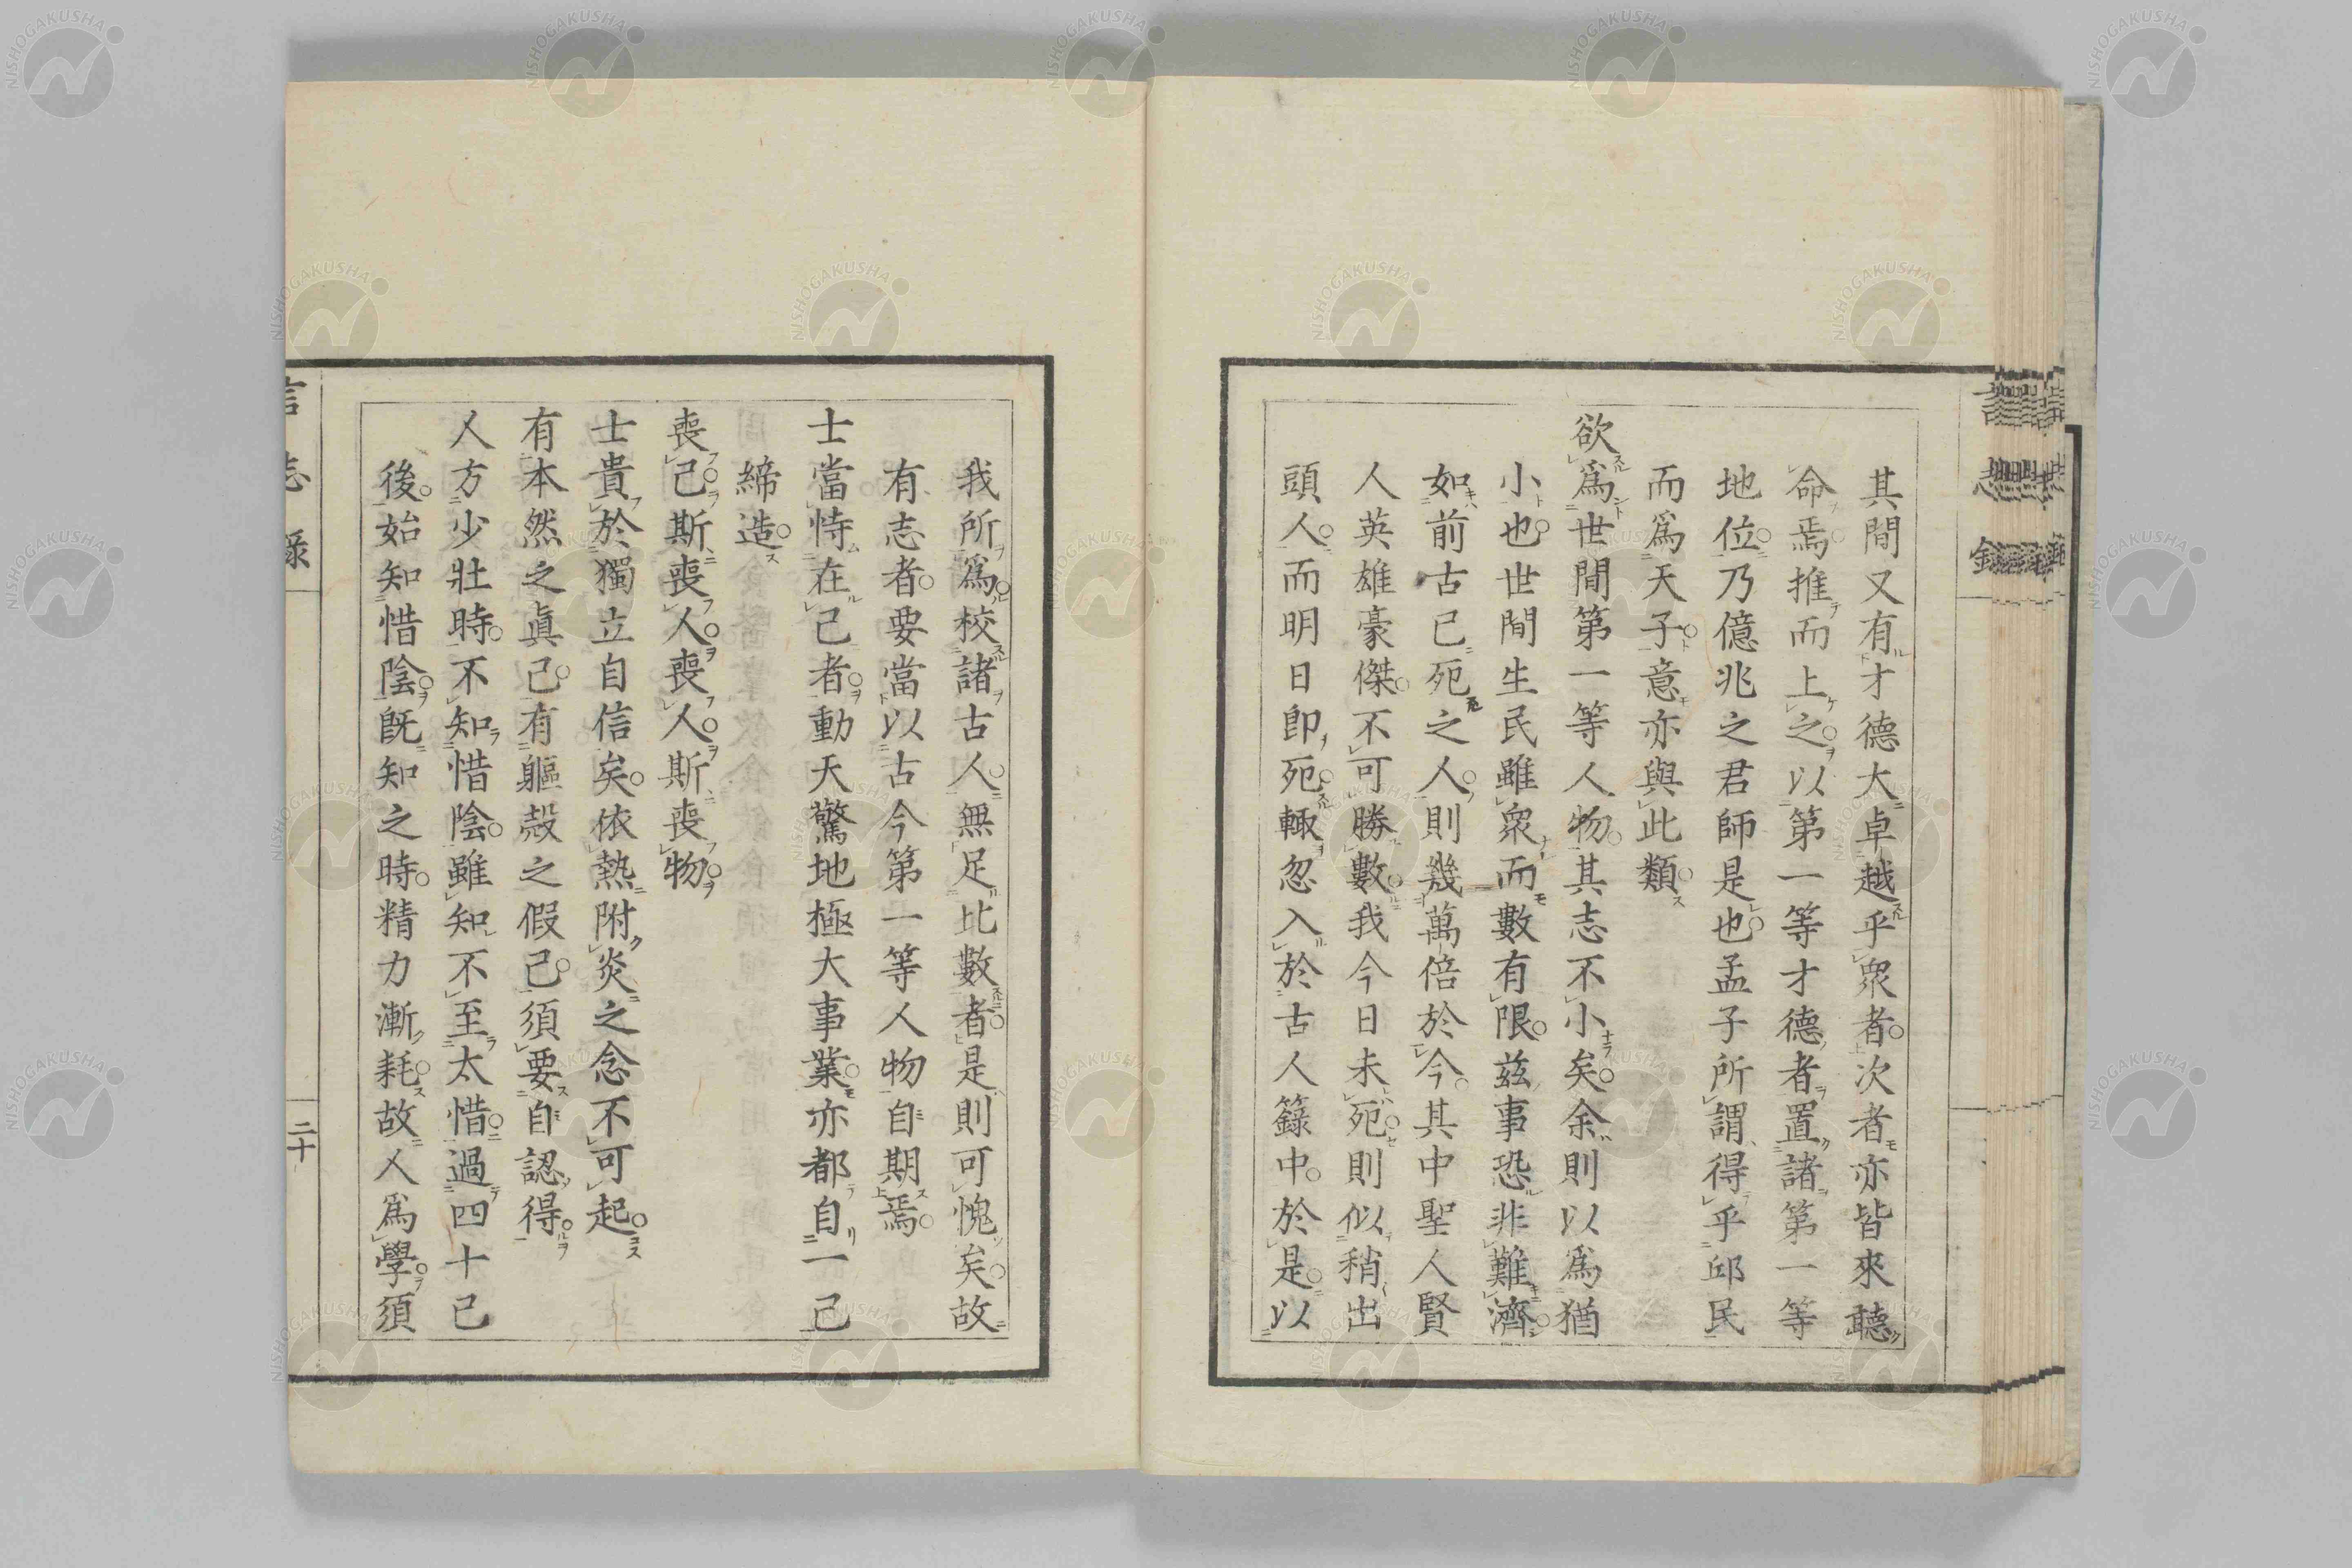 其間又有才德大卓越乎衆者次者亦皆來聽
命焉推而上之以第一等才德者置諸第一等
地位乃億兆之君師是也孟子所謂得乎邱民
而爲天子意亦與此類
欲爲世間第一等人物其志不小矣余則以爲猶
小也世間生民雖衆而數有限茲事恐非難濟
如前古已死之人則幾萬倍於今其中聖人賢
人英雄豪傑不可勝數我今日未死則似稍出
頭人而明日即死輙忽入於古人籙中於是以
我所爲校諸古人無足比數者是則可愧矣故
有志者要當以古今第一等人物自期焉
士當恃在己者動天驚地極大事業亦都自一己
締造
喪己斯喪人喪人斯喪物
士貴於獨立自信矣依熱附炎之念不可起
有本然之眞己有軀殼之假己須要自認得
人方少壯時不知惜陰雖知不至太惜過四十已
後始知惜陰既知之時精力漸耗故人爲學須
言志錄
二十
NISHOGAKUSHA